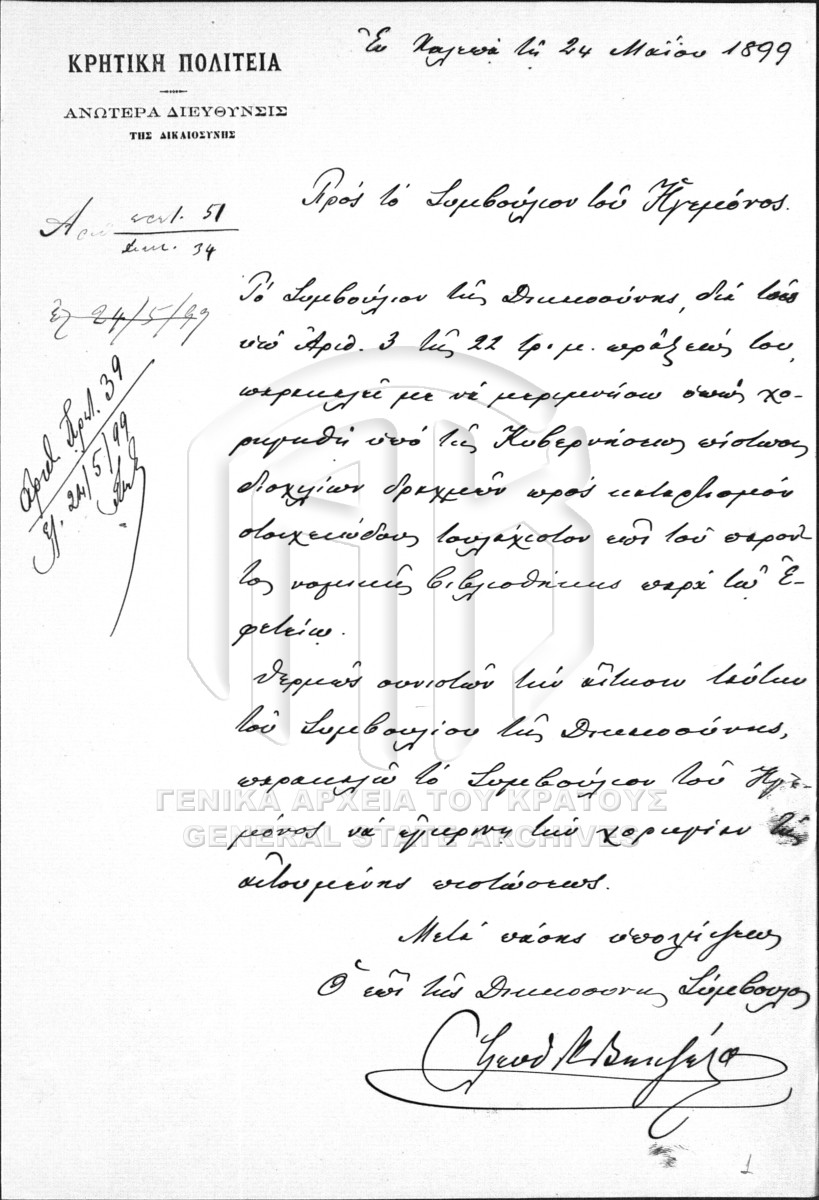 ΚΡΗΤΙΚΗ ΠΟΛΙΤΕΙΑ
ΑΝΩΤΕΡΑ ΔΙΕΥΘΥΝΣΙΣ
ΤΗΣ ΔΙΚΑΙΟΣΥΝΗΣ
Ἐν Χαλέπᾳ τῇ 24 Μαΐου 1899
Πρὸς τὸ Συμβούλιον τοῦ Ἡγεμόνος.
51
34
24/5/99
Ἀριθ. Πρωτ. 39
24/5/99
Τὸ Συμβούλιον τῆς Δικαιοσύνης, διὰ τῆς
ὑπὸ Ἀριθ. 3 τῆς 22 τρ. μ. πράξεώς του,
παρακαλεῖ με νὰ μεριμνήσω ὅπως χο-
ρηγηθῇ ὑπὸ τῆς Κυβερνήσεως πίστωσις
δισχιλίων δραχμῶν πρὸς καταρτισμὸν
στοιχειώδους τοὐλάχιστον ἐπὶ τοῦ παρόν-
τος νομικῆς βιβλιοθήκης παρὰ τῷ Ἐ-
φετείῳ.
Θερμῶς συνιστῶν τὴν αἴτησιν ταύτην
τοῦ Συμβουλίου τῆς Δικαιοσύνης,
παρακαλῶ τὸ Συμβούλιον τοῦ Ἡγε-
μόνος νὰ ἐγκρίνῃ τὴν χορηγίαν τῆς
αἰτουμένης πιστώσεως.
Μετὰ πάσης ὑπολήψεως
Ὁ ἐπὶ τῆς Δικαιοσύνης Σύμβουλος
Ἐλευθ. Κ. Βενιζέλος
ΓΕΝΙΚΑ ΑΡΧΕΙΑ ΤΟΥ ΚΡΑΤΟΥΣ
GENERAL STATE ARCHIVES
1